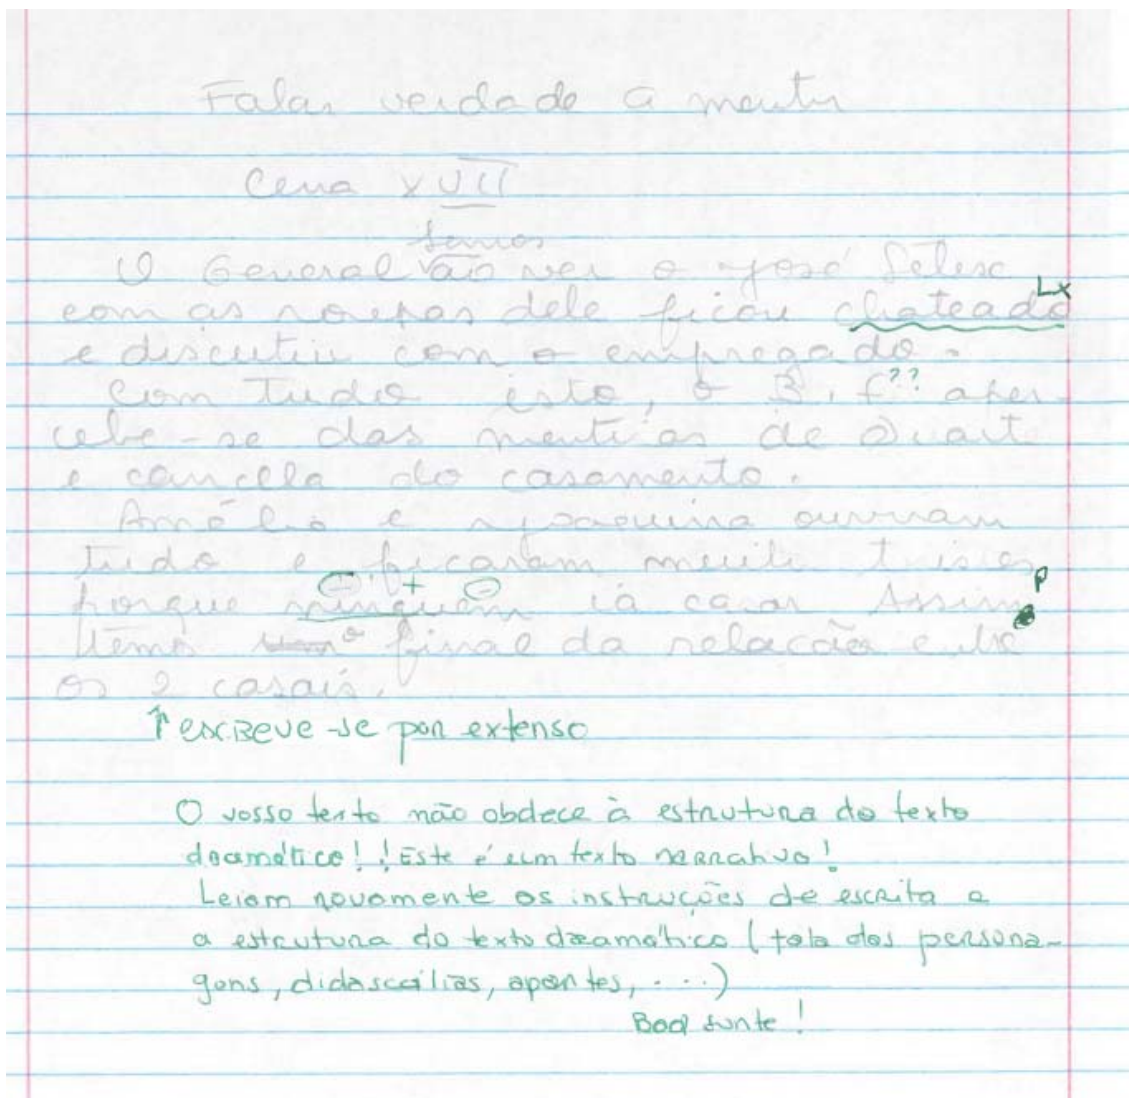 Falar verdade a mentir
Cena XVII
O General ao ver o José Felix
com as roupas dele ficou chateado Lx
e discutiu com o empregado.
Com tudo isto, o B. F ?? aper-
cebe-se das mentiras de Duarte
e cancela do casamento.
Amélia e Joaquina ouviram
tudo e ficaram muito tristes
porque ninguém ia casar Assim P
temo final da relação entre
os 2 casais.
↑ escreve-se por extenso
O vosso texto não obdece à estrutura do texto
dramático!! Este é um texto narrativo!
Leiam novamente as instruções de escrita e
a estrutura do texto dramático (fala das persona-
gens, didascálias, apartes, ....)
Boa sorte!